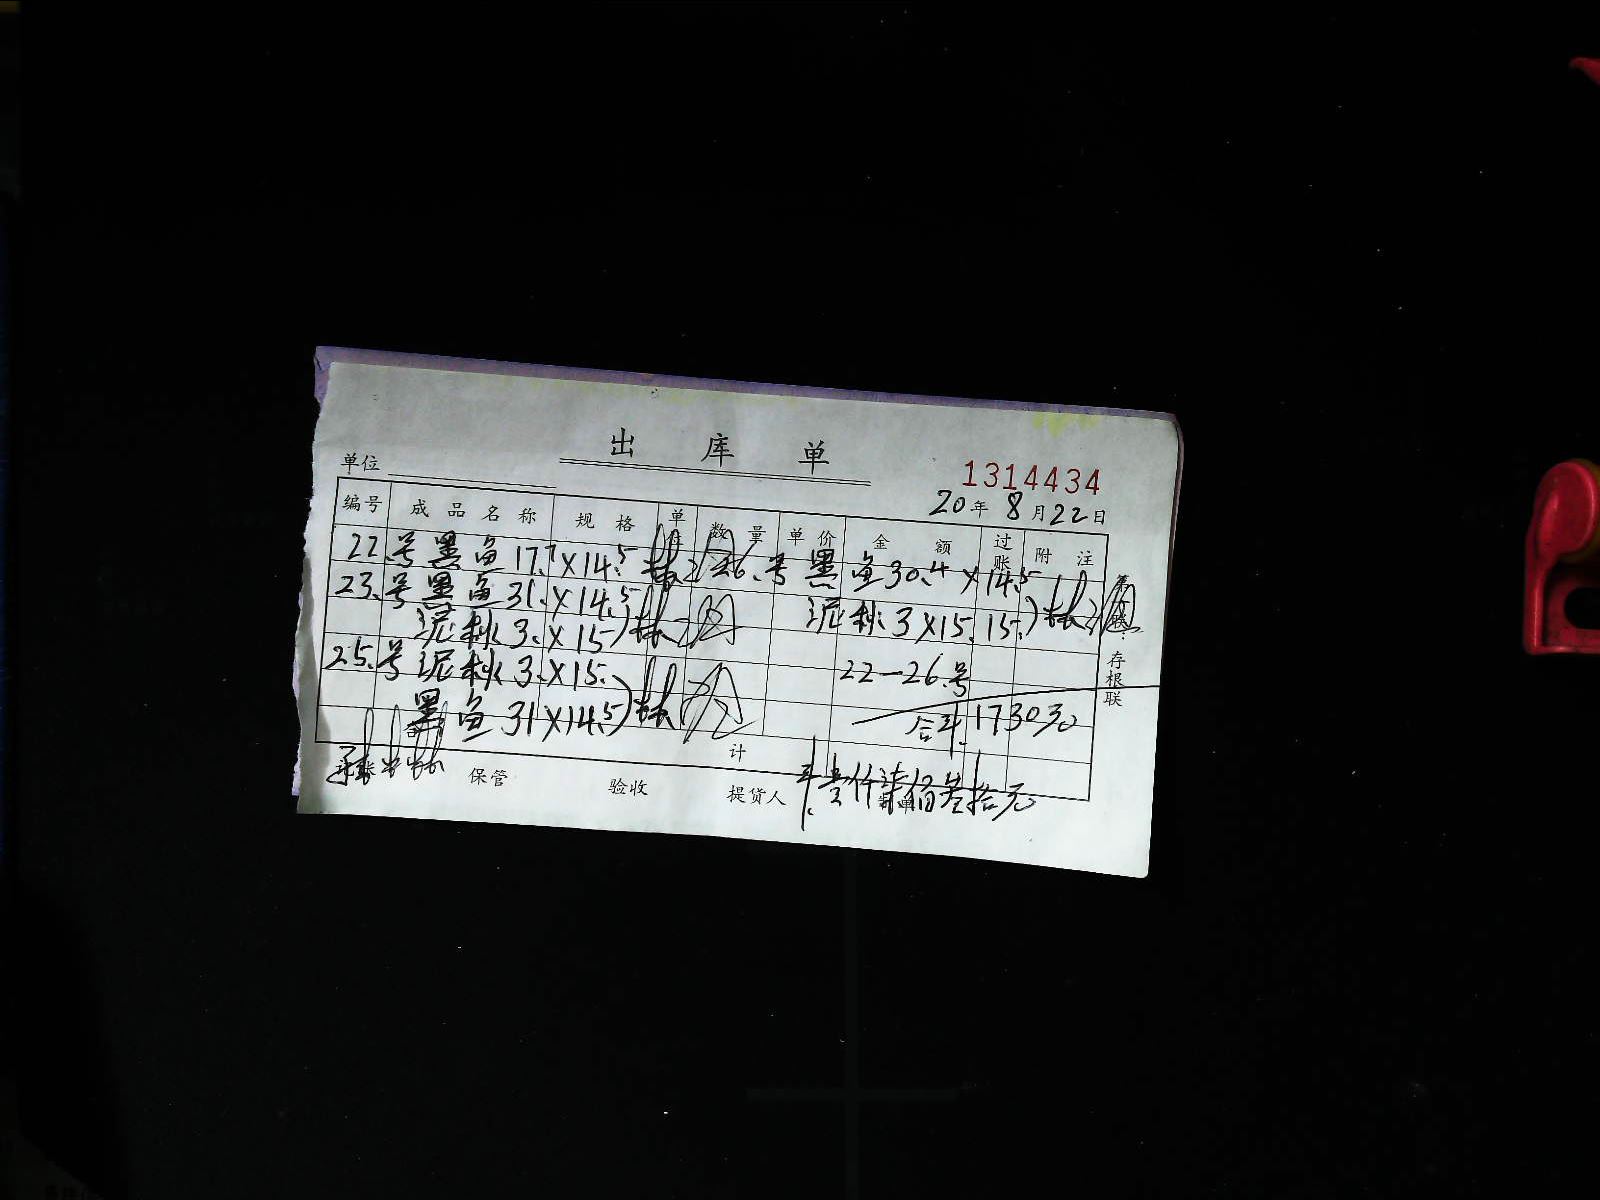 出 库 单
单位
1314434
20年 8月22日
编号 成品名称 规格 单位 数量 单价 金额 过账 附注
22.号黑鱼17.7×14.5 26.号黑鱼30.4×14.5
23.号黑鱼31.×14.5 泥秋3×15.
泥秋3.×15
25.号泥秋3.×15. 22—26.号
黑鱼31×14.5 合计.1730元
计
保管 验收 提货人 壹仟柒佰叁拾元
存根联